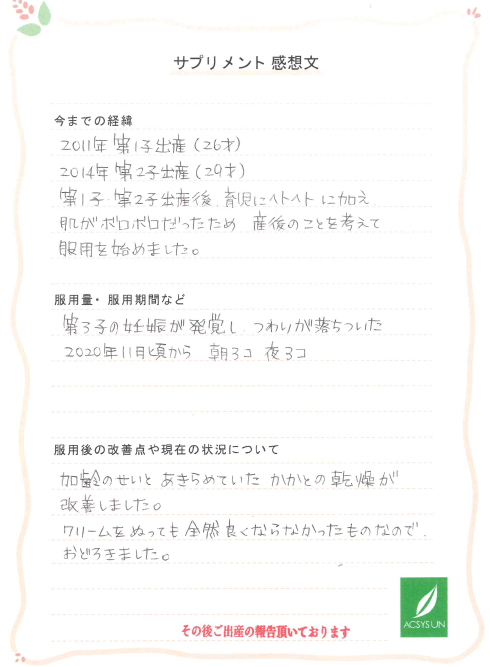 サプリメント 感想文
今までの経緯
2011年 第1子出産(26才)
2014年 第2子出産(29才)
第1子・第2子出産後、育児にヘトヘトに加え
肌がボロボロだったため 産後のことを考えて
服用を始めました。
服用量・服用期間など
第3子の妊娠が発覚し、つわりが落ちついた
2020年11月頃から 朝3コ 夜3コ
服用後の改善点や現在の状況について
加齢のせいと あきらめていた かかとの乾燥が
改善しました。
クリームをぬっても全然良くならなかったものなので、
おどろきました。
ACSYSUN
その後ご出産の報告頂いております